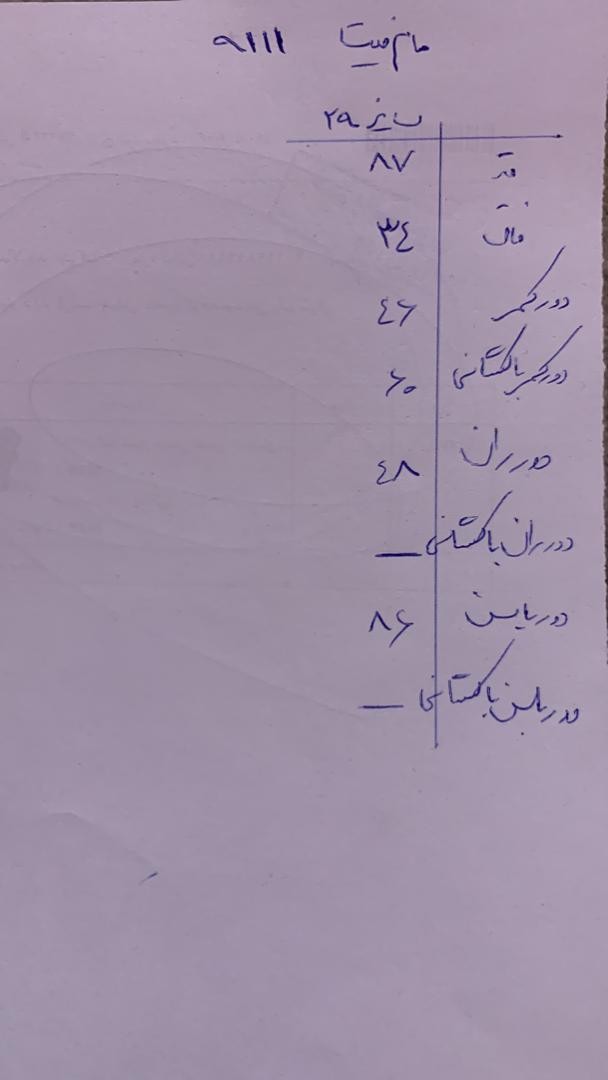 مام فیت ۹۱۱۱
سایز ۲۹
قد ۸۷
فاق ۳۴
دور کمر ۴۶
دور کمر با کشسانی ۶۰
دور ران ۴۸
دور ران با کشسانی —
دور باسن ۸۶
دور باسن با کشسانی —